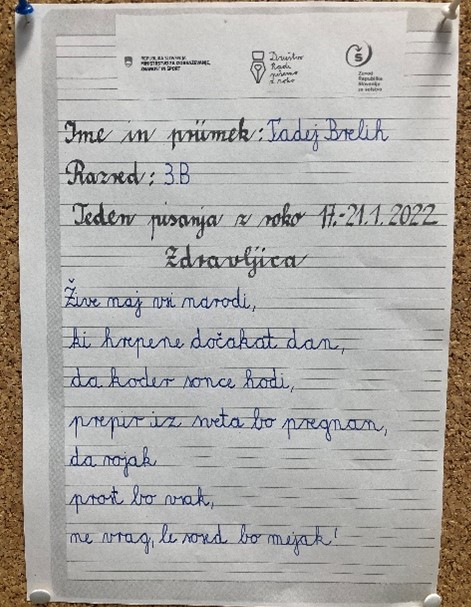 REPUBLIKA SLOVENIJA
MINISTRSTVO ZA IZOBRAŽEVANJE,
ZNANOST IN ŠPORT
Društvo
Radi
pišemo
z roko
Zavod
Republike
Slovenije
za šolstvo
Ime in priimek: Tadej Brelih
Razred: 3.B
Teden pisanja z roko 17.-21.1.2022
Zdravljica
Žive naj vsi narodi,
ki hrepene dočakat dan,
da koder sonce hodi,
prepir iz sveta bo pregnan,
da rojak
prost bo vsak,
ne vrag, le sosed bo mejak!